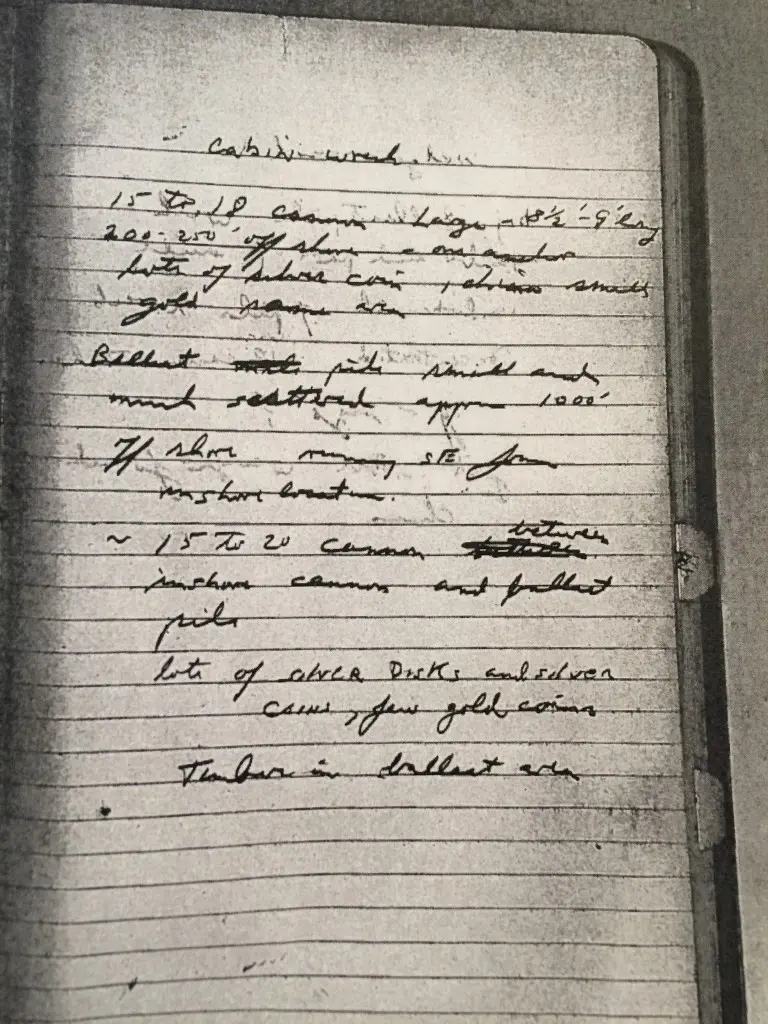 Cabin wreck.
15 to 18 cannon large - 8½'-9' long
200-250' off shore - one anchor
lots of silver coin, small
gold same area
Ballast pile small and
much scattered approx 1000'
off shore running SE from
inshore location.
~ 15 to 20 cannon between
inshore cannon and ballast
pile
lots of silver DISKS and silver
coins, few gold coins
Timbers in ballast area